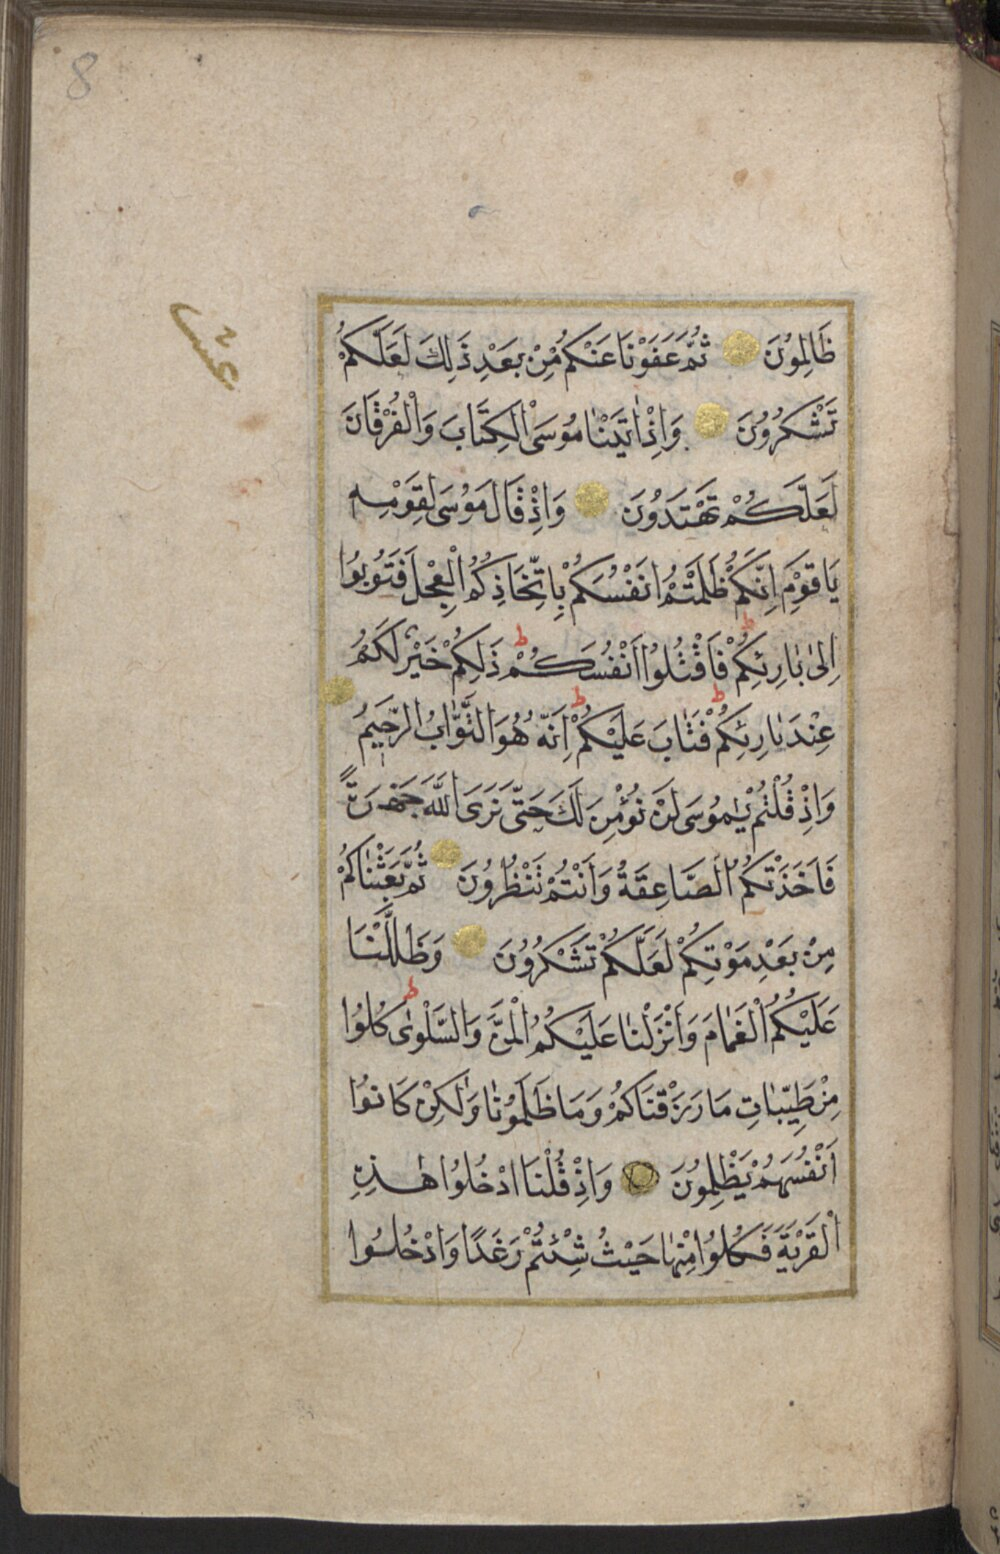 8
عشر
ظَالِمُونَ ثُمَّ عَفَوْنَا عَنْكُمْ مِنْ بَعْدِ ذٰلِكَ لَعَلَّكُمْ
تَشْكُرُونَ وَاِذْ اٰتَيْنَا مُوسَى الْكِتَابَ وَالْفُرْقَانَ
لَعَلَّكُمْ تَهْتَدُونَ وَاِذْ قَالَ مُوسَى لِقَوْمِهِ
يَا قَوْمِ اِنَّكُمْ ظَلَمْتُمْ اَنْفُسَكُمْ بِاتِّخَاذِكُمُ الْعِجْلَ فَتُوبُوا
اِلٰى بَارِئِكُمْ فَاقْتُلُوا اَنْفُسَكُمْ ذٰلِكُمْ خَيْرٌ لَكُمْ
عِنْدَ بَارِئِكُمْ فَتَابَ عَلَيْكُمْ اِنَّهُ هُوَ التَّوَّابُ الرَّحِيمُ
وَاِذْ قُلْتُمْ يٰمُوسَى لَنْ نُؤْمِنَ لَكَ حَتّٰى نَرَى اللّٰهَ جَهْرَةً
فَاَخَذَتْكُمُ الصَّاعِقَةُ وَاَنْتُمْ تَنْظُرُونَ ثُمَّ بَعَثْنَاكُمْ
مِنْ بَعْدِ مَوْتِكُمْ لَعَلَّكُمْ تَشْكُرُونَ وَظَلَّلْنَا
عَلَيْكُمُ الْغَمَامَ وَاَنْزَلْنَا عَلَيْكُمُ الْمَنَّ وَالسَّلْوٰى كُلُوا
مِنْ طَيِّبَاتِ مَا رَزَقْنَاكُمْ وَمَا ظَلَمُونَا وَلٰكِنْ كَانُوا
اَنْفُسَهُمْ يَظْلِمُونَ وَاِذْ قُلْنَا ادْخُلُوا هٰذِهِ
الْقَرْيَةَ فَكُلُوا مِنْهَا حَيْثُ شِئْتُمْ رَغَدًا وَادْخُلُوا